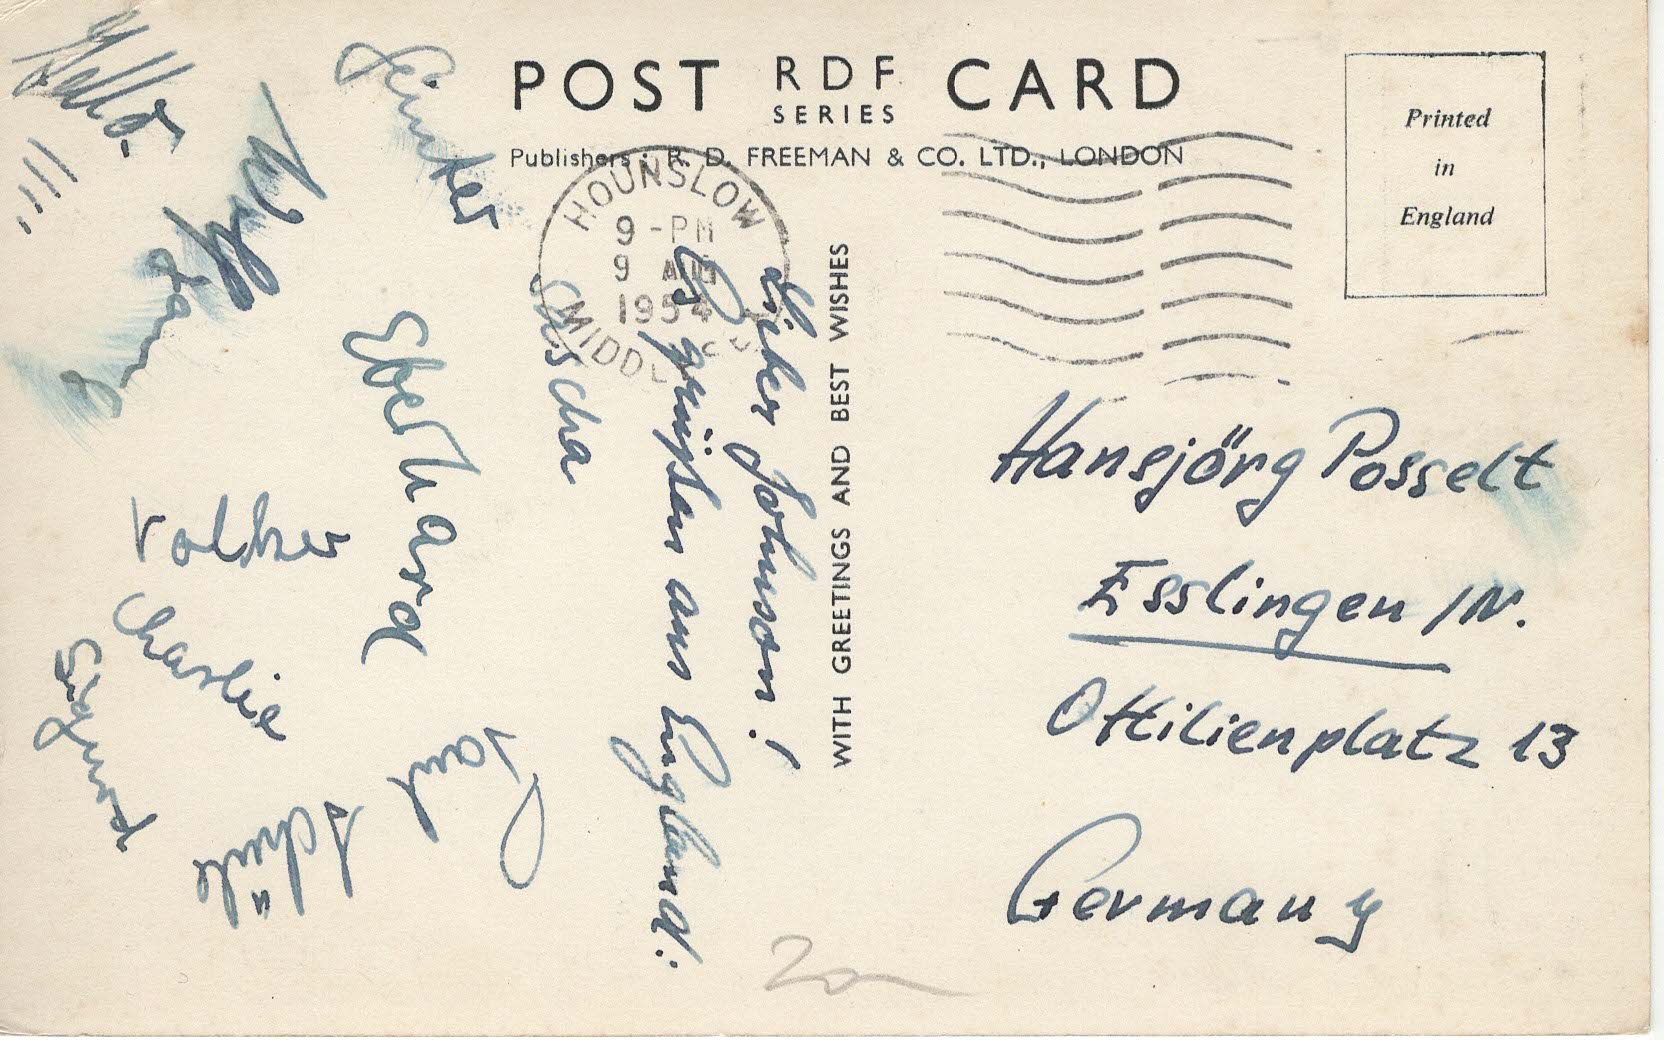 POST RDF CARD
SERIES
Publishers: R. D. FREEMAN & CO. LTD., LONDON
Printed
in
England
HOUNSLOW
9 - PM
9 AUG
1954
WITH GREETINGS AND BEST WISHES
Lieber Johnson!
Es grüßen aus England:
Günter
Wolfgang
Eberhard
Volker
Charlie
Sigmund
Paul
Schüle
Hansjörg Posselt
Esslingen /N.
Ottilienplatz 13
Germany